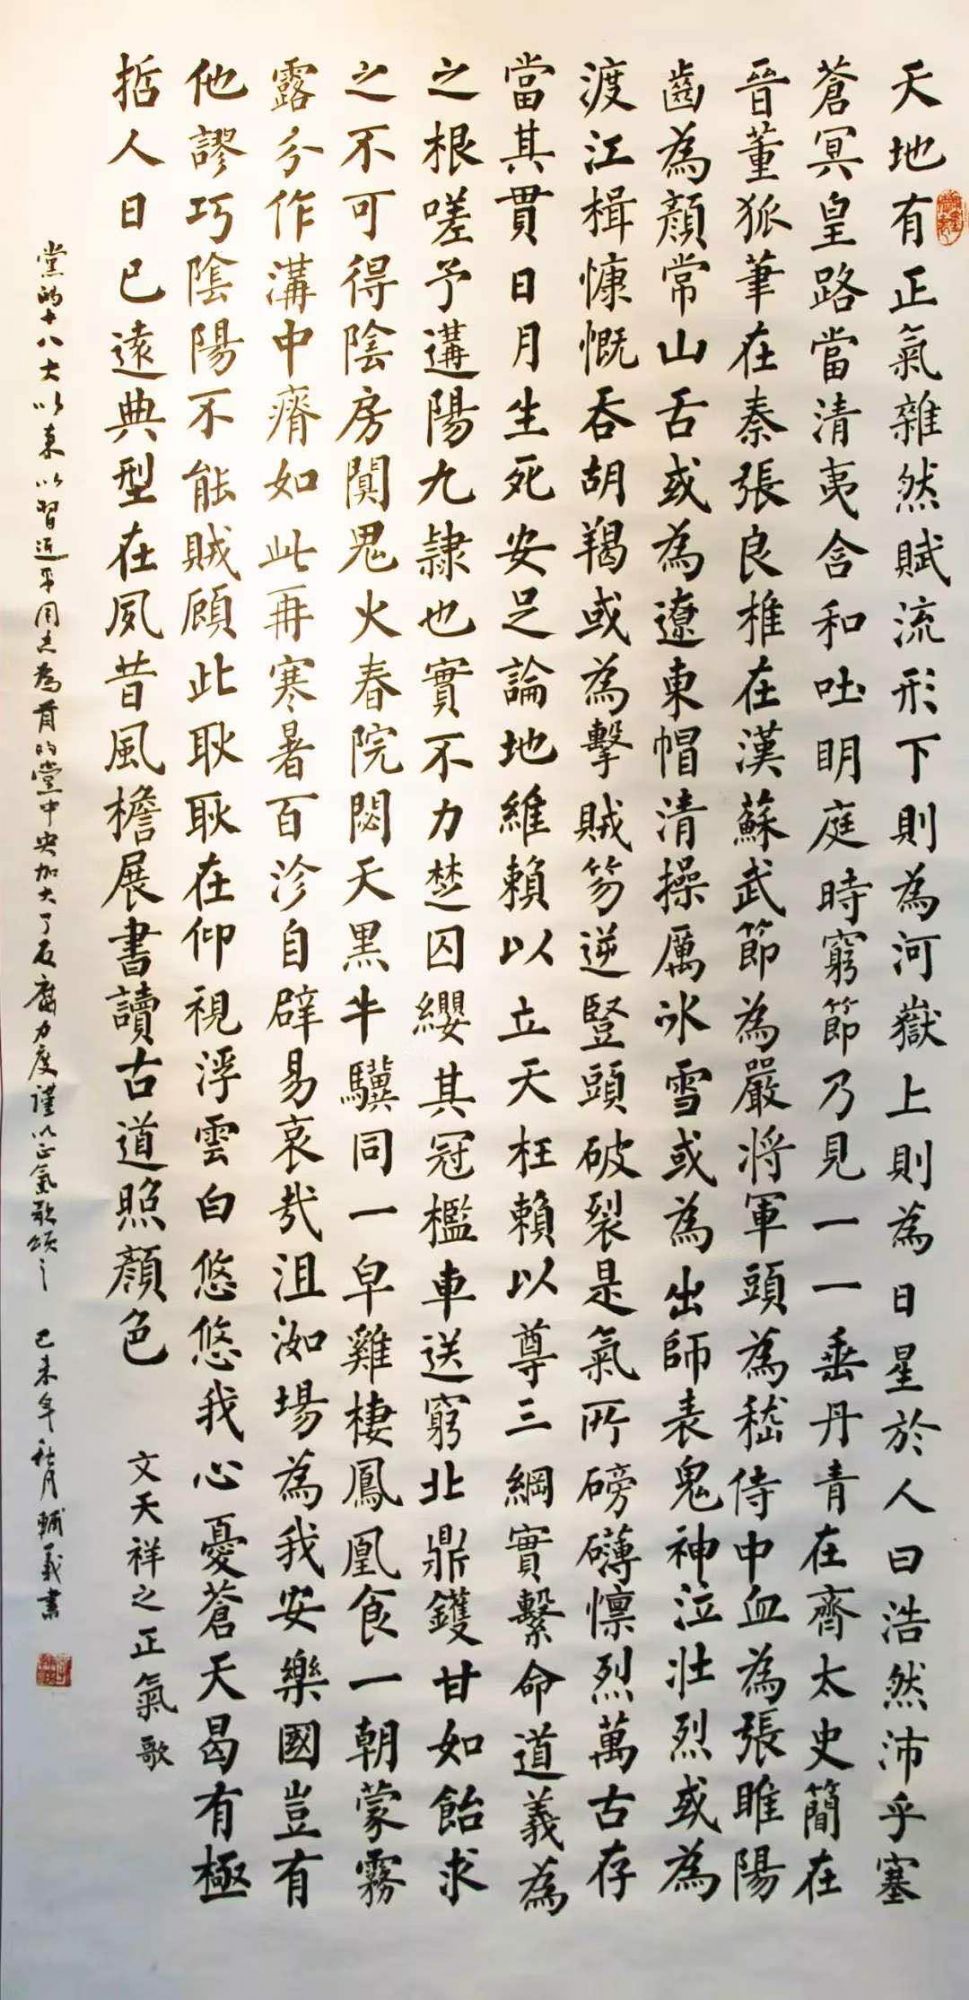 天地有正氣雜然賦流形下則為河嶽上則為日星於人曰浩然沛乎塞
蒼冥皇路當清夷含和吐明庭時窮節乃見一一垂丹青在齊太史簡在
晉董狐筆在秦張良椎在漢蘇武節為嚴將軍頭為嵇侍中血為張睢陽
齒為顏常山舌或為遼東帽清操厲冰雪或為出師表鬼神泣壯烈或為
渡江楫慷慨吞胡羯或為擊賊笏逆豎頭破裂是氣所磅礴懍烈萬古存
當其貫日月生死安足論地維賴以立天柱賴以尊三綱實繫命道義為
之根嗟予遘陽九隸也實不力楚囚纓其冠檻車送窮北鼎鑊甘如飴求
之不可得陰房闃鬼火春院閟天黑牛驥同一皁雞棲鳳凰食一朝蒙霧
露分作溝中瘠如此再寒暑百沴自辟易哀哉沮洳場為我安樂國豈有
他謬巧陰陽不能賊顧此耿耿在仰視浮雲白悠悠我心憂蒼天曷有極
哲人日已遠典型在夙昔風檐展書讀古道照顏色
文天祥之正氣歌
黨的十八大以來以習近平同志為首的黨中央加大了反腐力度謹以正氣歌頌之
己未年秋月輔義書